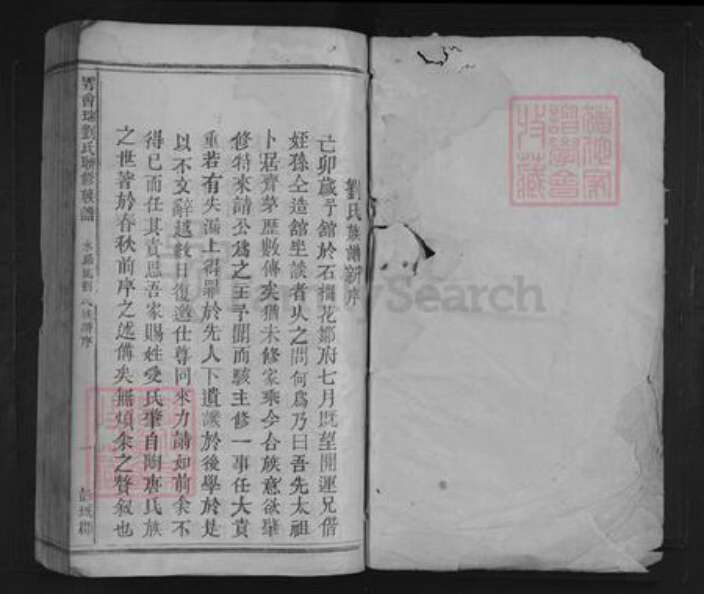 劉氏族譜新序
亡卯歲予舘於石欄花鄒府七月既望開運兄偕
姪孫仝造舘坐談者久之問何爲乃曰吾先太祖
卜居齊夢歷數傳矣猶未修家乘今合族意欲舉
修特來請公爲之主予聞而駭主修一事任大責
重若有失漏上得罪於先人下遺譏於後學於是
以不文辭越數日復邀仕尊同來力請如前余不
得已而任其責思吾家賜姓受氏肇自陶唐氏族
之世著於春秋前序之述僃矣無煩余之贅敍也
雩會瑞劉氏聯修族譜
族譜序
一
彭城郡
Search